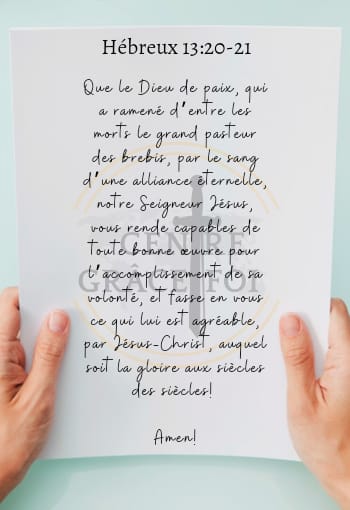 Hébreux 13:20-21
Que le Dieu de paix, qui
a ramené d'entre les
morts le grand pasteur
des brebis, par le sang
d'une alliance éternelle,
notre Seigneur Jésus,
vous rende capables de
toute bonne œuvre pour
l'accomplissement de sa
volonté, et fasse en vous
ce qui lui est agréable,
par Jésus-Christ, auquel
soit la gloire aux siècles
des siècles!
Amen!
CENTRE
GRÂCE FOI